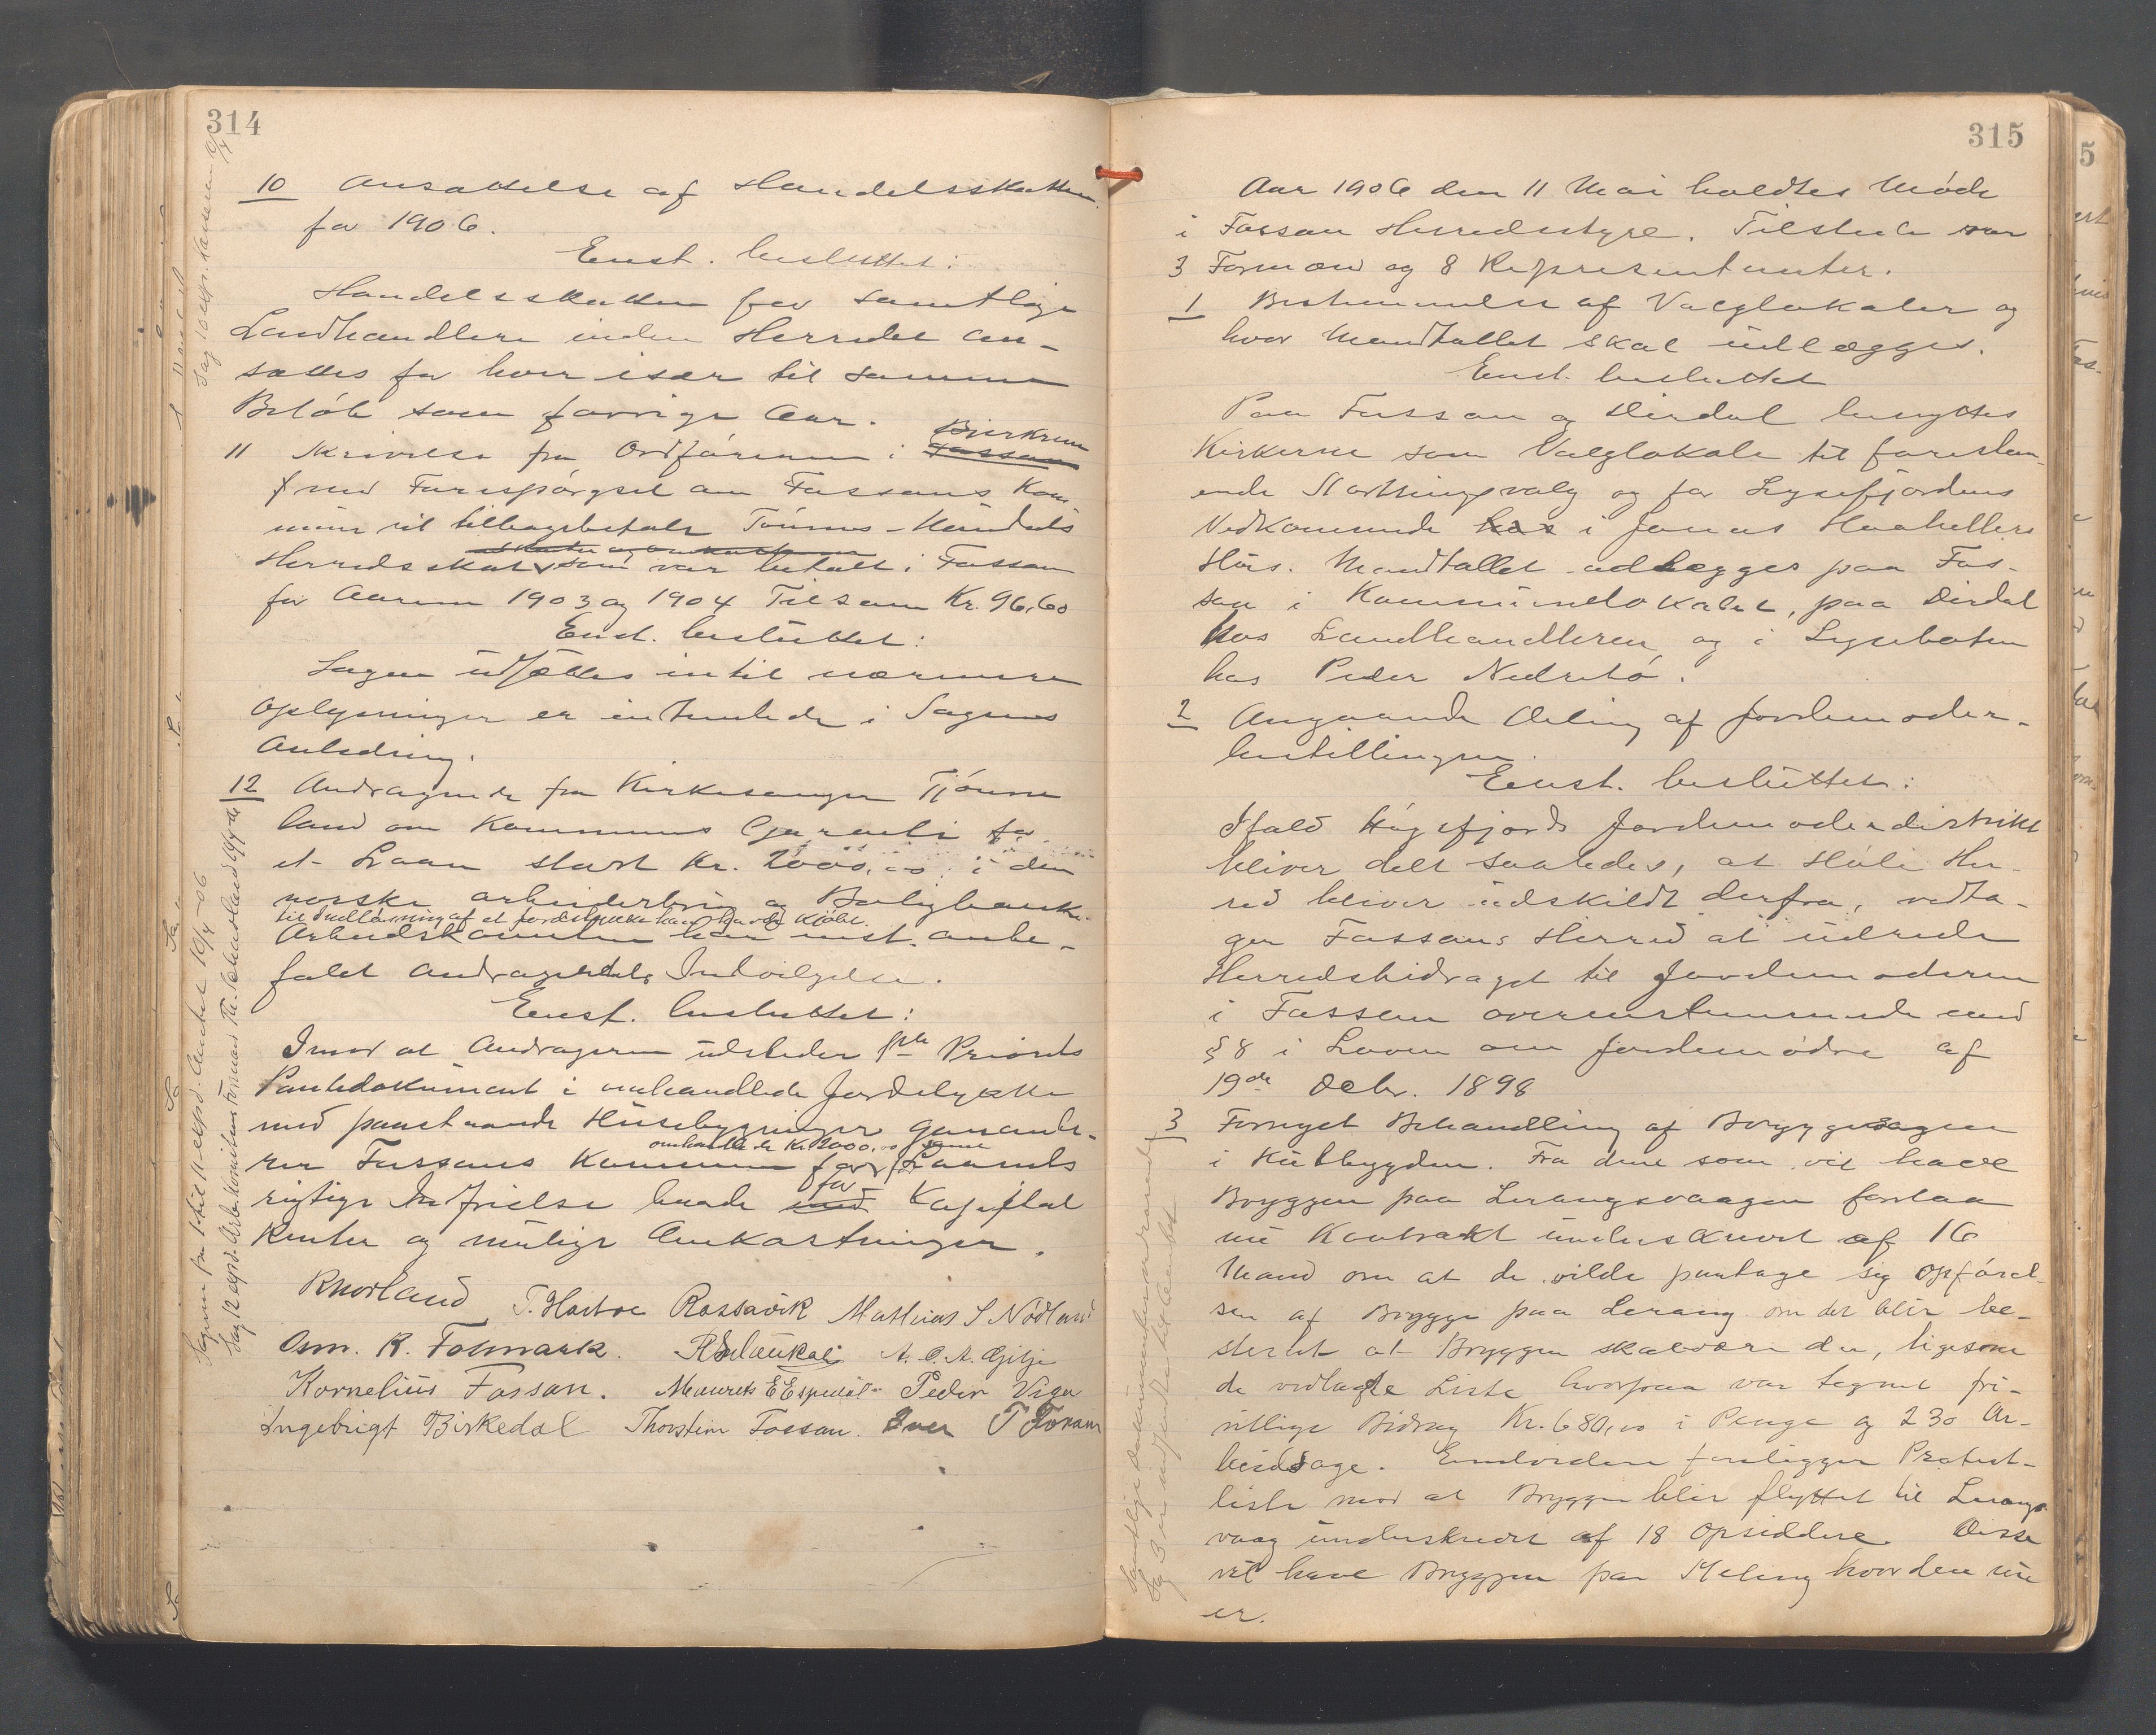 314
10 Ansættelse af Handelsskatten
for 1906.
Enst. besluttet:
Handelsskatten for samtlige
Landhandlere inden Herredet an-
sættes for hver især til samme
Beløb som forrige Aar.
11 Skrivelse fra Ordføreren i Bjerkreim
med Forespørgsel om Fossans Kom
mune vil tilbagebetale Tønnes
Herredsskat som var betalt i Fossan
for Aarene 1903 og 1904 Tilsam Kr. 96,60
Enst. besluttet:
Sagen udsættes indtil nærmere
Oplysninger er indhentede i Sagens
Anledning.
12 Andragende fra Kirkesanger Tjønne
land om Kommunens Garanti for
et Laan stort Kr. 2000,00 i den
norske Arbeiderbrug og Boligbank
til Indløsning af et Jordstykke han har kjøbt.
Arbeidskomiteen har enst. anbe-
falet Andragendets Indvilgelse.
Enst. besluttet:
Imod at Andrageren udsteder 1ste Priorits
Pantedokument i omhandlede Jordstykke
med paastaaende Husebygninger garante-
rer Fossans Kommune for omhandlede Kr. 2000,00 Laanets
rigtige Indfrielse baade for Kapital
Renter og mulige Omkostninger.
R Norland T. Hartvo Rossavik Mathias S Nødland
Osm. R. Folmark. A. O. A. Gilje
Kornelius Fossan. Maurits E Espedal Peder Viga
Ingebrigt Birkedal Thorstein Fossan. Iver T Foram
Sagene fra 1 til 11 exped. Amtet 10/4-06
315
Aar 1906 den 11 Mai holdtes Møde
i Fossan Herredsstyre. Tilstede var
3 Formænd og 8 Representanter.
1 Bestemmelse af Valglokaler og
hvor Mandtallet skal udlægges.
Enst. besluttet
Paa Fossan og Dirdal benyttes
Kirkerne som Valglokale til forestaa-
ende Stortingsvalg og for Lysefjordens
Vedkommende i Jonas Haahellers
Hus. Mandtallet udlægges paa Fos-
san i Kommunelokalet, paa Dirdal
hos Landhandleren og i Lysebotn
hos Peder Nedrebø.
2 Angaaende Deling af Jordemoder-
bestillingen.
Enst. besluttet:
Ifald Høgsfjords Jordemoderdistrikt
bliver delt saaledes, at Høle Her-
red bliver udskildt derfra, vedta-
ger Fossans Herred at udrede
Herredsbidraget til Jordemoderen
i Fossan overensstemmende med
§ 8 i Loven om Jordemødre af
19de Debr. 1898
3 Fornyet Behandling af Bryggesagen
i Kulbygden. Fra dem som vil have
Bryggen paa Lerangsvaagen forelaa
nu Kontrakt underskrevet af 16
Mand om at de vilde paatage sig Opførel-
sen af Brygge paa Lerang om det blir be-
stemt at Bryggen skal være der, ligesom
de vedlagte Liste hvorpaa var tegnet fri-
villige Bidrag Kr. 680,00 i Penge og 230 Ar-
beidsdage. Endvidere foreligger Protest-
liste mod at Bryggen blir flyttet til Lerangs
vaag underskrevet af 18 Opsiddere. Disse
vil have Bryggen paa Meling hvor den nu
er.